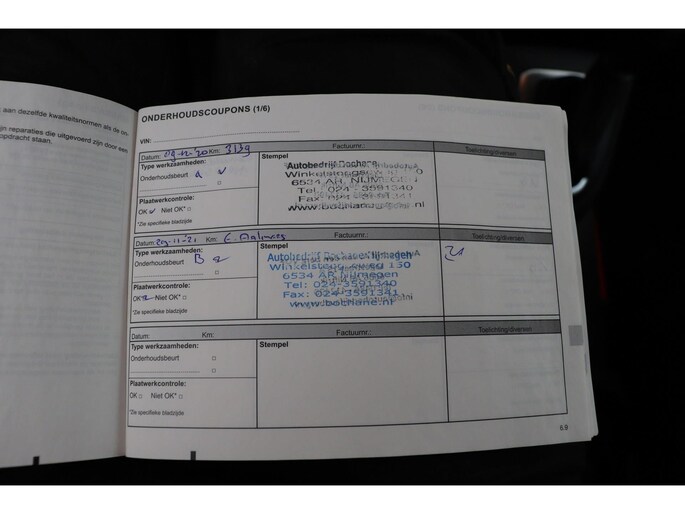 aan dezelfde kwaliteitsnormen als de on-
jn reparaties die uitgevoerd zijn door een
opdracht staan.
ONDERHOUDSCOUPONS (1/6)
VIN:
Datum: 09-12-20 Km: 3139 Factuurnr.: Toelichting/diversen
Type werkzaamheden: Stempel
Onderhoudsbeurt a
Plaatwerkcontrole:
OK Niet OK*
*Zie specifieke bladzijde
Autobedrijf Bochane
Winkelsteegseweg
6534 AR NIJMEGEN
Tel: 024-3591340
Datum: 29-11-'21 Km: Factuurnr.: Toelichting/diversen
Type werkzaamheden: Stempel
Onderhoudsbeurt B
Plaatwerkcontrole:
OK Niet OK*
*Zie specifieke bladzijde
Autobedrijf Bochane Nijmegen
Winkelsteegseweg 150
6534 AR Nijmegen
Tel: 024-3591340
Fax: 024-3591341
www.bochane.nl
Datum: Km: Factuurnr.: Toelichting/diversen
Type werkzaamheden: Stempel
Onderhoudsbeurt
Plaatwerkcontrole:
OK Niet OK*
*Zie specifieke bladzijde
6.9